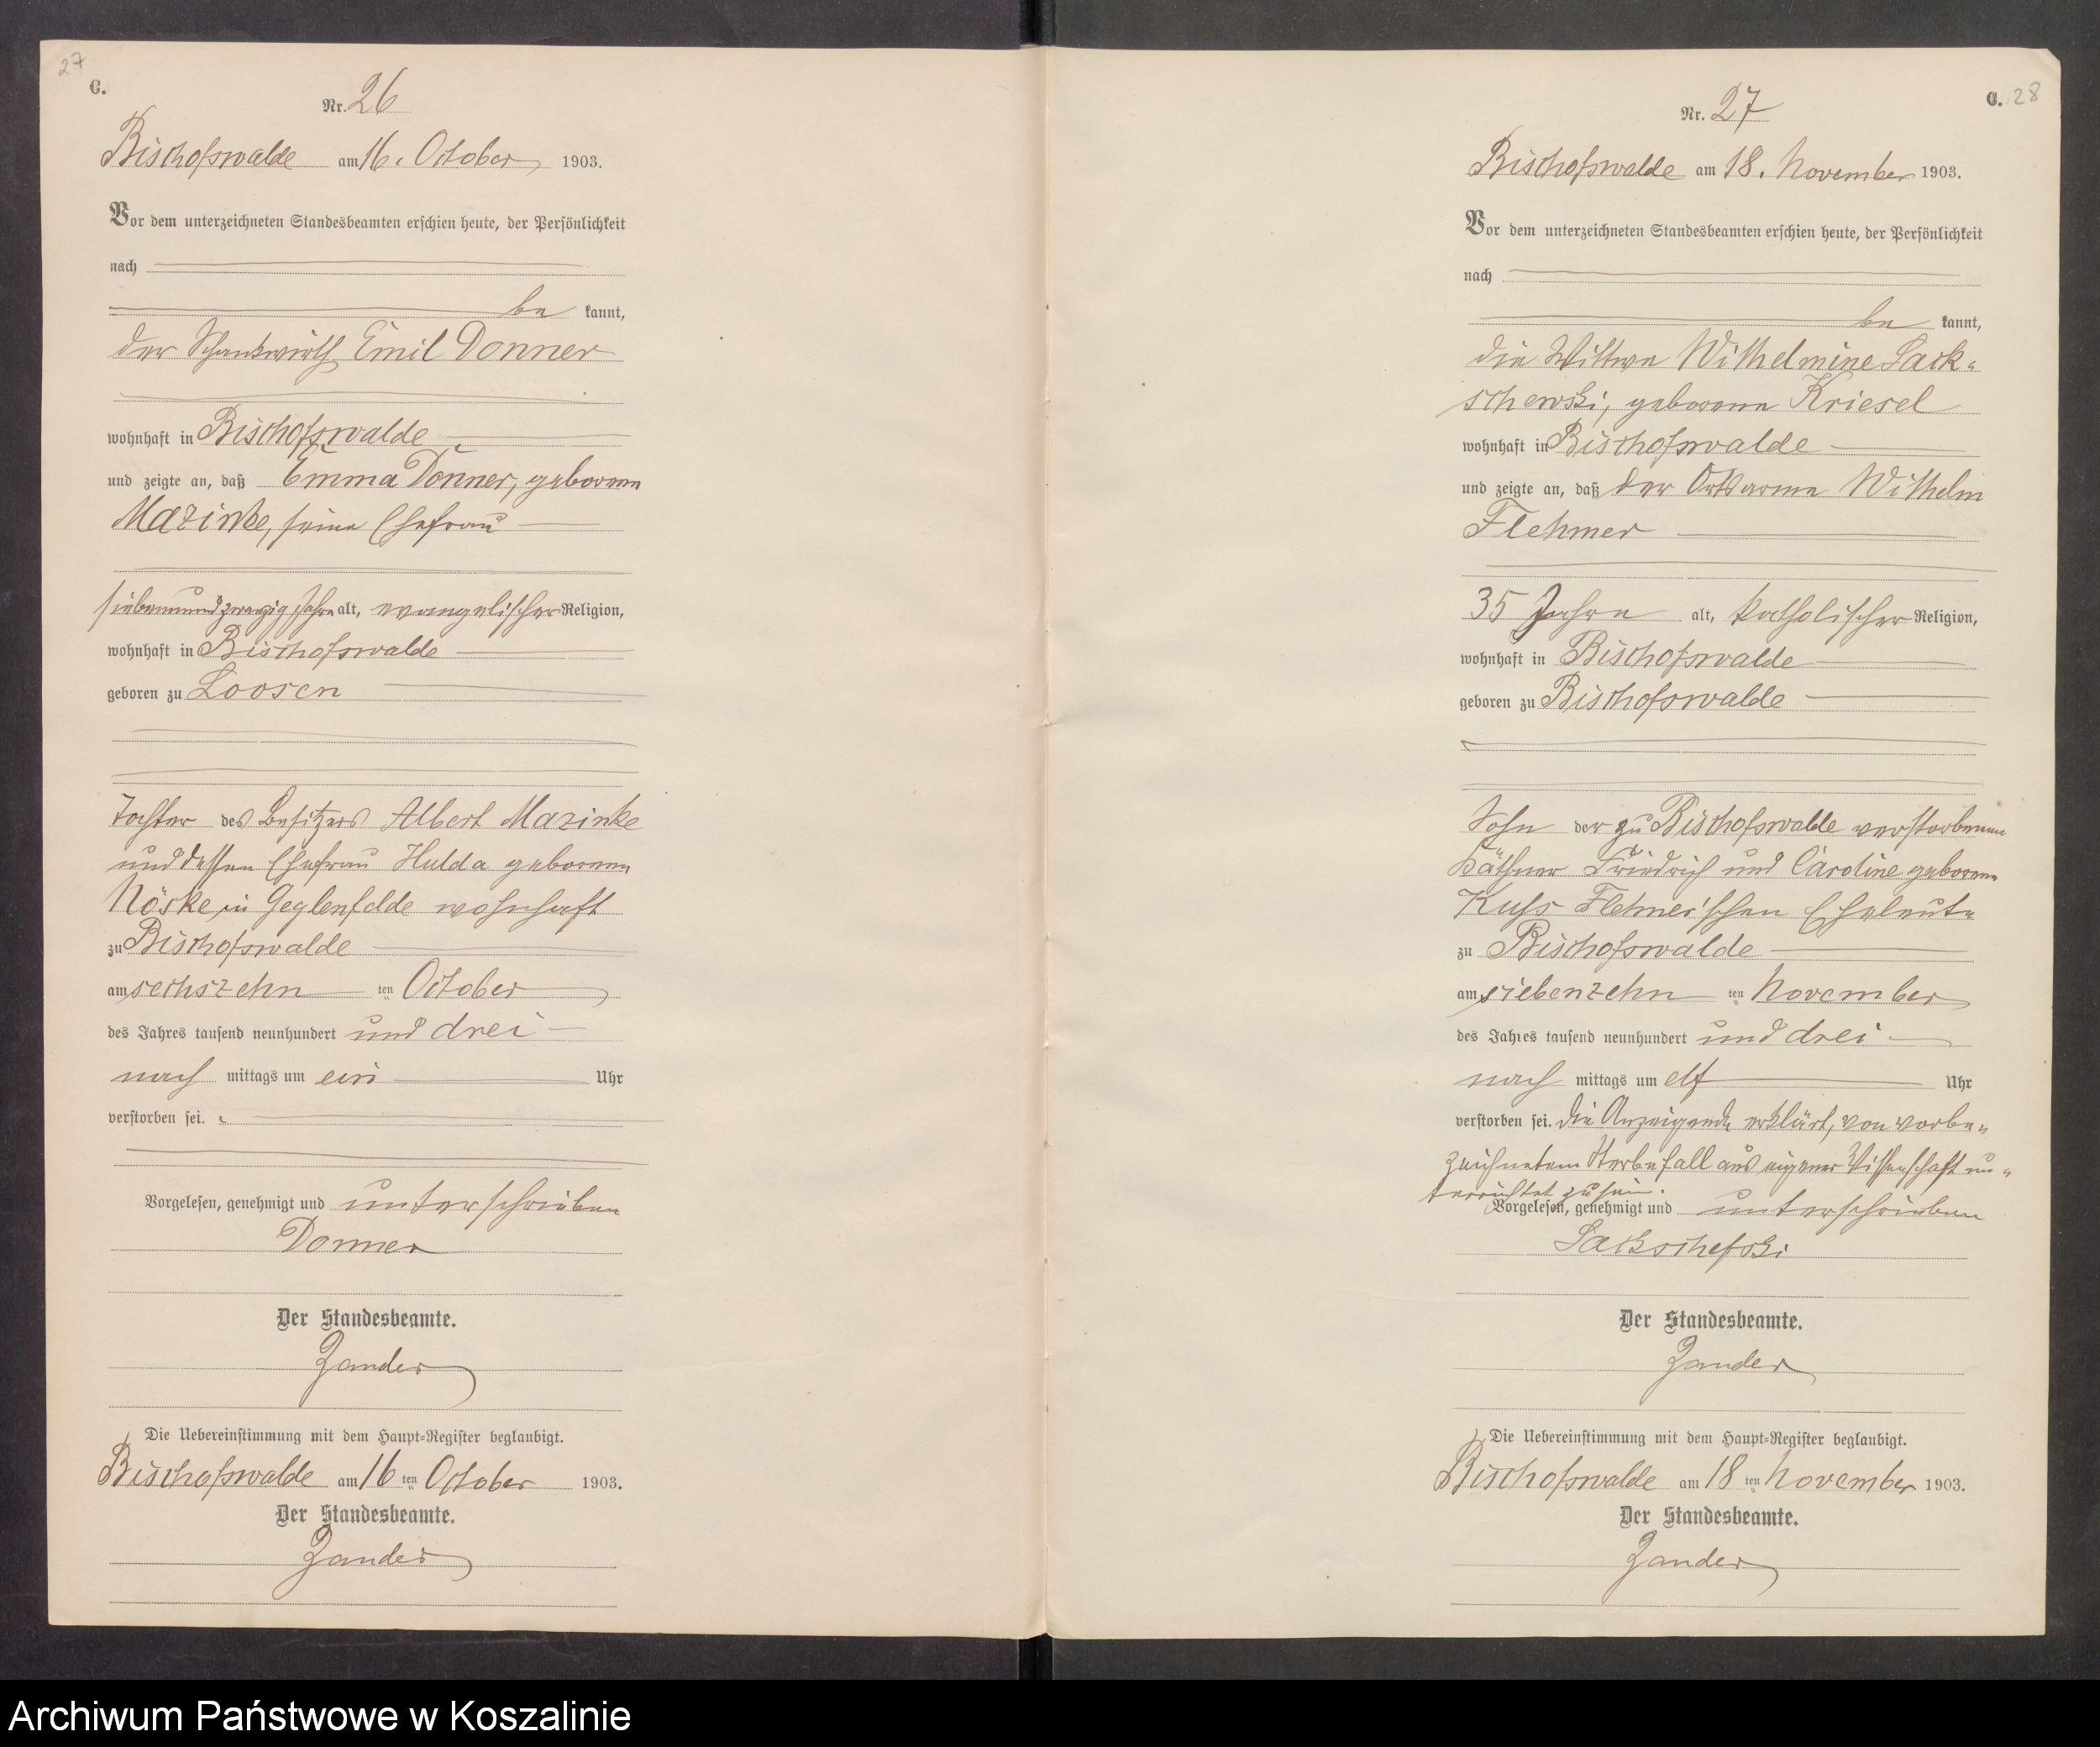 27
C.
Nr. 26
Bischofswalde am 16. October 1903.
Vor dem unterzeichneten Standesbeamten erschien heute, der Persönlichkeit
nach
be kannt,
der Schankwirth Emil Donner
wohnhaft in Bischofswalde
und zeigte an, daß Emma Donner, geborene
Mazinke, seine Ehefrau
siebenundzwanzig Jahre alt, evangelischer Religion,
wohnhaft in Bischofswalde
geboren zu Loosen
Tochter des Besitzers Albert Mazinke
und dessen Ehefrau Hulda geborenen
Nöske in Geglenfelde wohnhaft
zu Bischofswalde
am sechszehn ten October
des Jahres tausend neunhundert und drei
nach mittags um ein Uhr
verstorben sei.
Vorgelesen, genehmigt und unterschrieben
Donner
Der Standesbeamte.
Zander
Die Uebereinstimmung mit dem Haupt-Register beglaubigt.
Bischofswalde am 16 ten October 1903.
Der Standesbeamte.
Zander
C. 28
Nr. 27
Bischofswalde am 18. November 1903.
Vor dem unterzeichneten Standesbeamten erschien heute, der Persönlichkeit
nach
be kannt,
die Wittwe Wilhelmine Lack-
schewski, geborene Kriesel
wohnhaft in Bischofswalde
und zeigte an, daß der Ortsarme Wilhelm
Flehmer
35 Jahre alt, katholischer Religion,
wohnhaft in Bischofswalde
geboren zu Bischofswalde
Sohn der zu Bischofswalde verstorbenen
Käthner Friedrich und Caroline geborene
Kuss Flehmer'schen Eheleute
zu Bischofswalde
am siebenzehn ten November
des Jahres tausend neunhundert und drei
nach mittags um elf Uhr
verstorben sei. Die Anzeigende erklärt, von vorbe-
zeichnetem Sterbefall aus eigener Wissenschaft un-
terrichtet zu sein.
Vorgelesen, genehmigt und unterschrieben
Lackschefski
Der Standesbeamte.
Zander
Die Uebereinstimmung mit dem Haupt-Register beglaubigt.
Bischofswalde am 18 ten November 1903.
Der Standesbeamte.
Zander
Archiwum Państwowe w Koszalinie